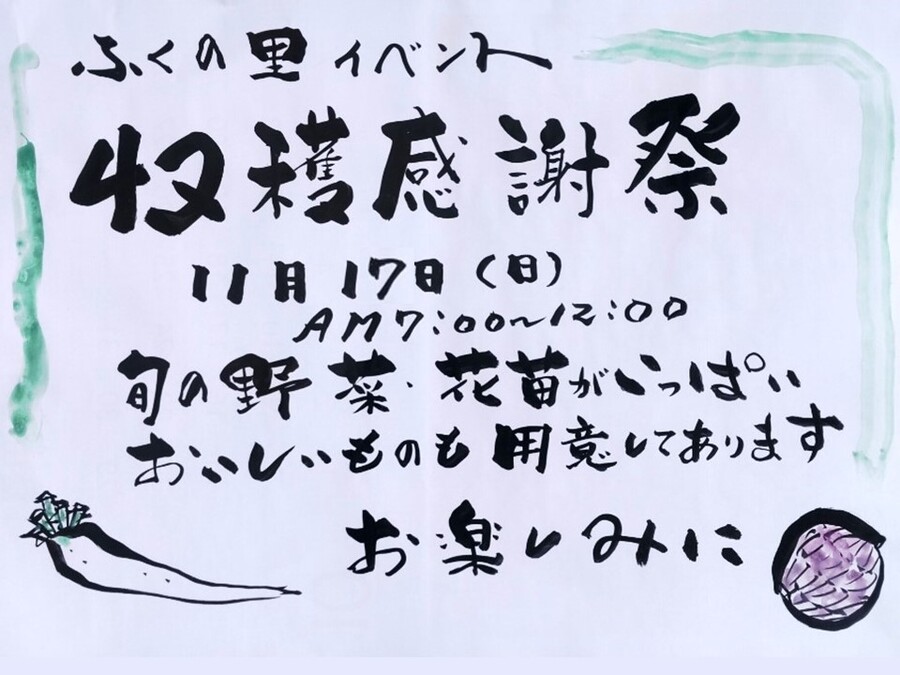 ふくの里 イベント
収穫感謝祭
11月17日（日）
AM7:00~12:00
旬の野菜・花苗がいっぱい
おいしいものも用意してあります
お楽しみに